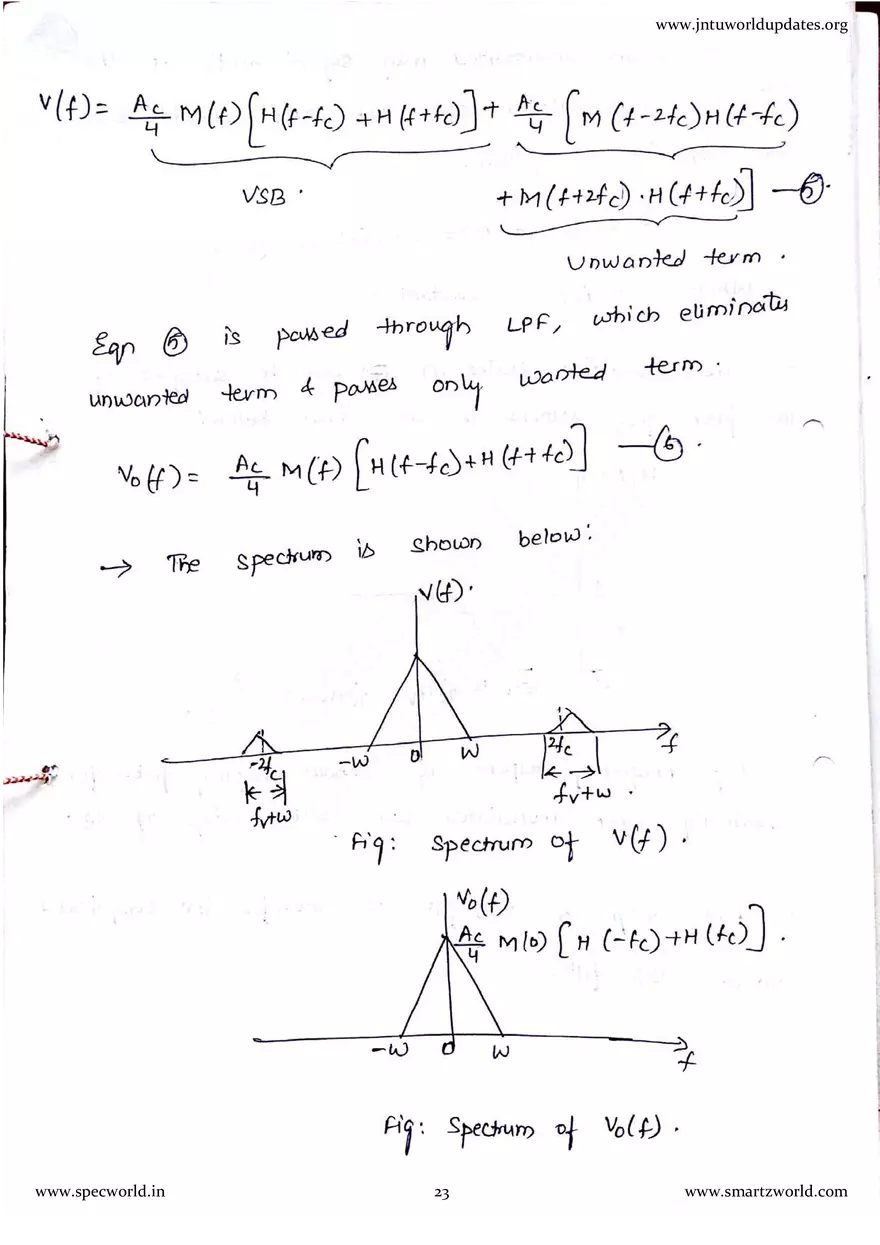 www.jntuworldupdates.org
V(f) = Ac/4 M(f) [H(f-fc) + H(f+fc)] + Ac/4 [M(f-2fc)H(f-fc)
VSB . + M(f+2fc) . H(f+fc)] — ⑤.
Unwanted term .
Eqn ⑤ is passed through LPF, which eliminates
unwanted term & passes only wanted term .
Vo(f) = Ac/4 M(f) [H(f-fc) + H(f+fc)] — ⑥ .
→ The spectrum is shown below:
V(f).
-2fc -W 0 W 2fc f
fv+w fv+w .
Fig: Spectrum of V(f) .
Vo(f)
Ac/4 M(0) [H(-fc) + H(fc)] .
-W 0 W f
Fig: Spectrum of Vo(f) .
www.specworld.in 23 www.smartzworld.com